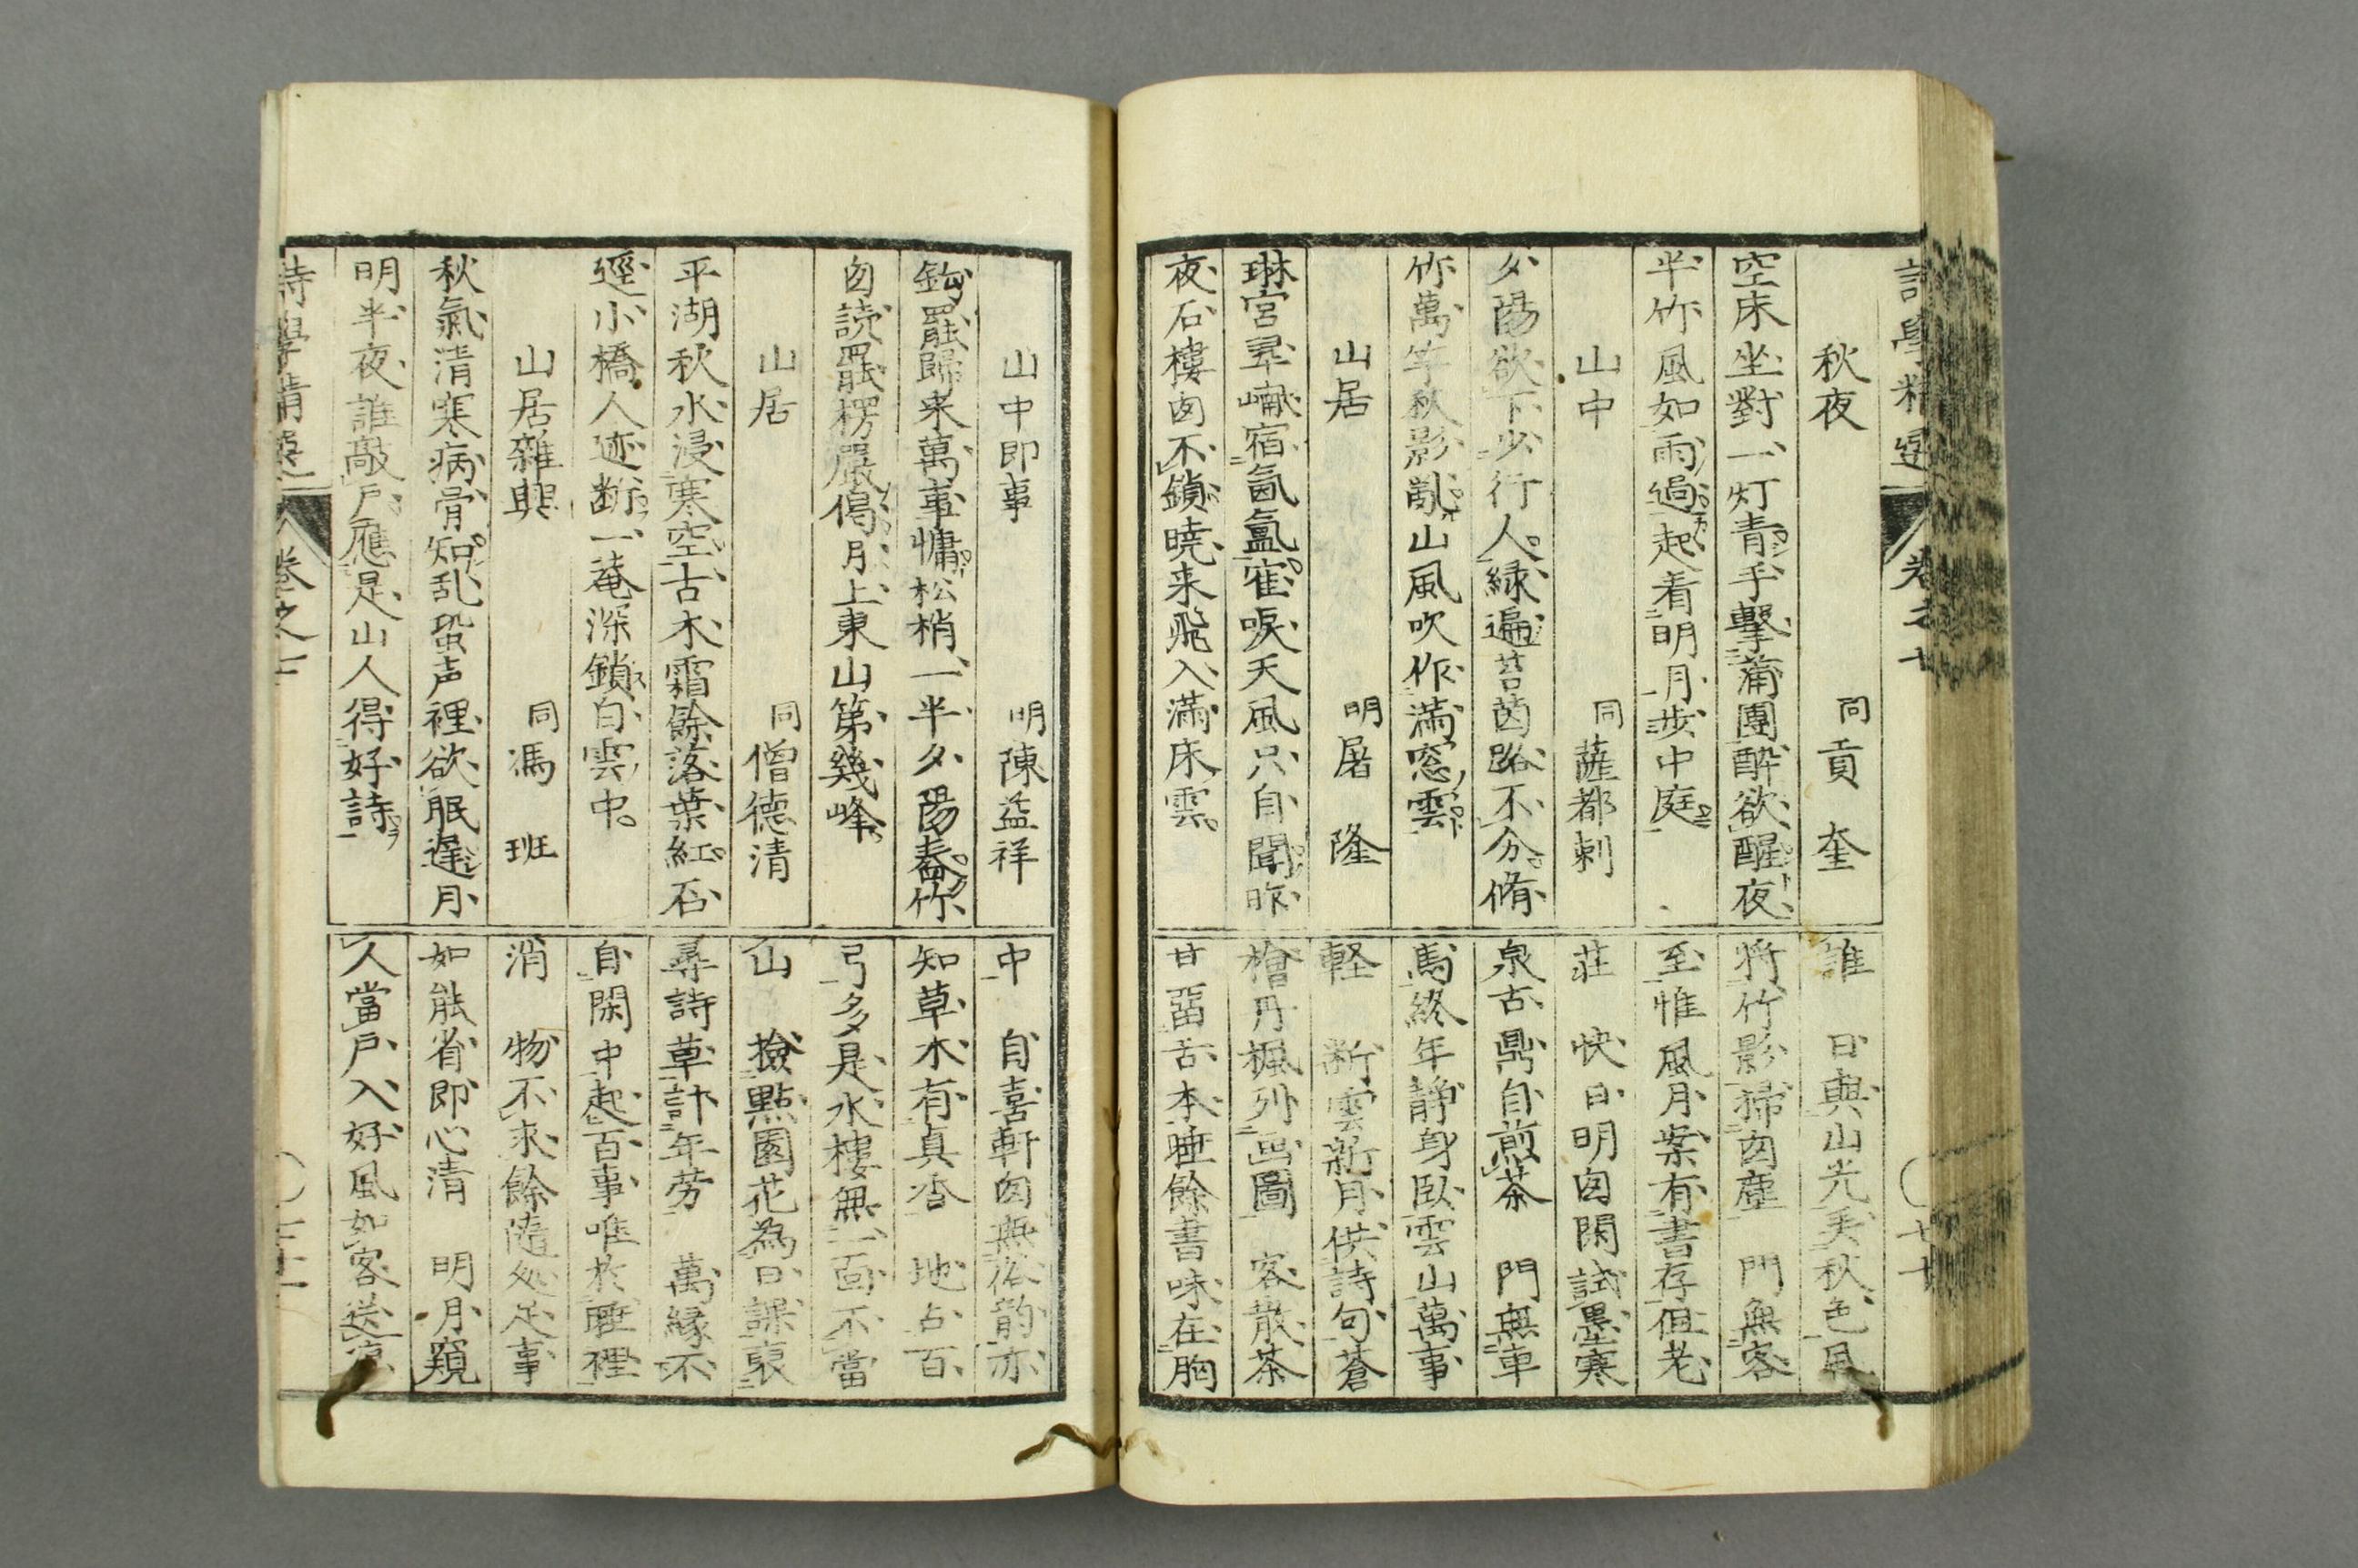 詩學精選 卷之十
秋夜 同貢 奎
空床坐對一灯青手擊蒲團酔欲醒夜
半竹風如雨過起着明月歩中庭
山中 同薩都剌
夕陽欲下少行人緑遍苔茵路不分脩
竹萬竿秋影乱山風吹作満窓雲
山居 明屠 隆
琳宮宿氤氳寉唳天風只自聞昨
夜石樓囱不鎖暁来飛入満床雲
誰 日與山光美秋色風
将竹影掃囱塵 門無客
至惟風月案有書存但老
荘 快日明囱閑試墨寒
泉古鼎自煎茶 門無車
馬終年静身臥雲山萬事
軽 断雲新月供詩句蒼
檜丹楓列画圖 客散茶
甘畱舌本睡餘書味在胸
山中即事 明陳益祥
鈎罷歸来萬事慵松梢一半夕陽舂竹
囱読罷楞嚴偈月上東山第幾峰
山居 同僧德清
平湖秋水浸寒空古木霜餘落葉紅石
逕小橋人迹断一菴深鎖白雲中
山居雜興 同馮 班
秋氣清寒病骨知乱蛩声裡欲眠遅月
明半夜誰敲戸應是山人得好詩
中 自喜軒囱無俗韵亦
知草木有真香 地占百
弓多是水樓無一面不當
山 撿點園花為日課裒
尋詩草計年劳 萬縁不
自閑中起百事唯於睡裡
消 物不求餘隨処足事
如能省即心清 明月窺
人當戸入好風如客送凉
詩學精選 卷之十